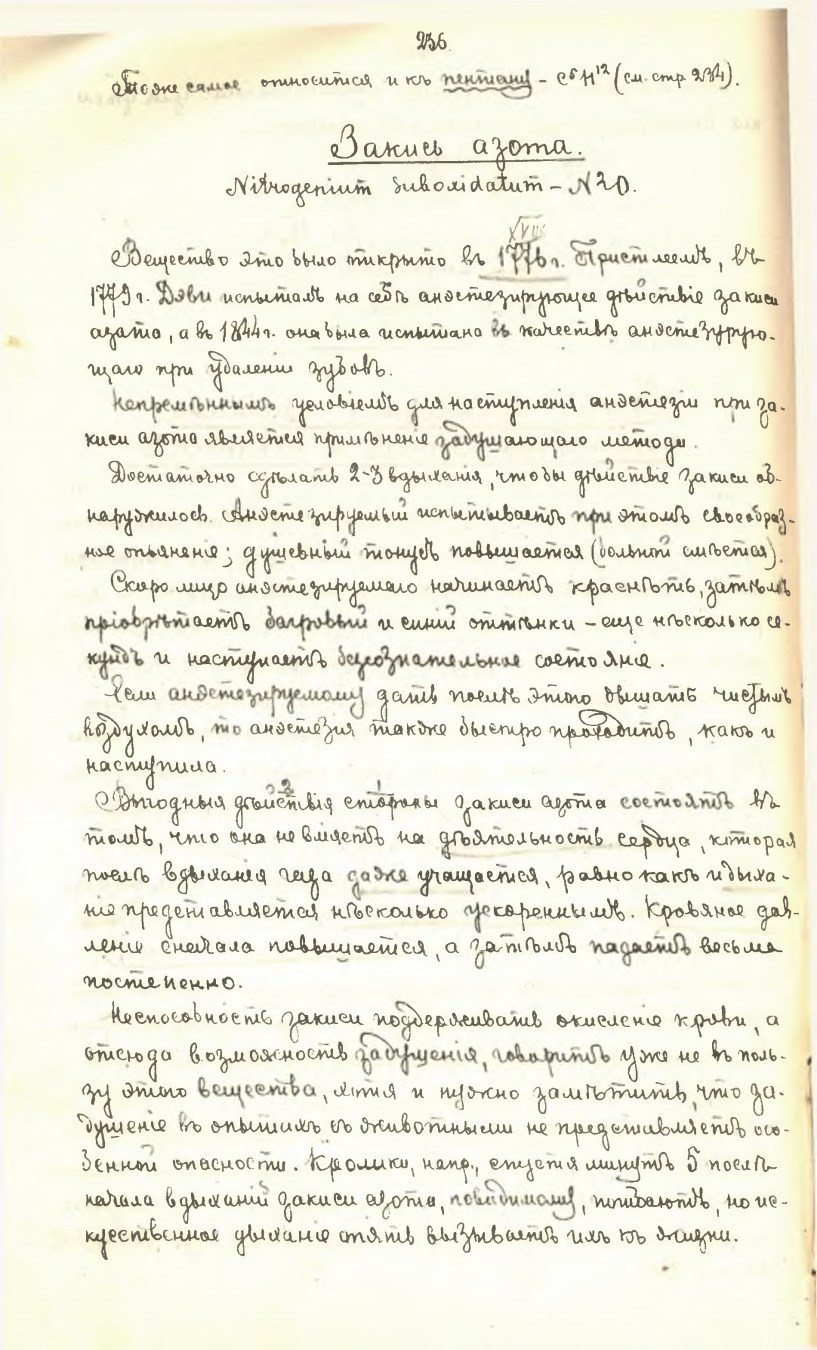 236.
Тоже самое относится и къ пентану – C⁵H¹² (см. стр. 234).
Закись азота.
Nitrogenium suboxidatum – N²O.
XVIII
Вещество это было открыто въ 1776 г. Пристлеемъ, въ
1779 г. Дэви испыталъ на себѣ анэстезирующее дѣйствіе закиси
азота, а въ 1844 г. она была испытана въ качествѣ анэстезурую-
щаго при удаленіи зубовъ.
Непремѣннымъ условіемъ для наступленія анэстезіи при за-
киси азота является примѣненіе задушающаго метода.
Достаточно сдѣлать 2-3 вдыханія, чтобы дѣйствіе закиси об-
наружилось. Анэстезируемый испытываетъ при этомъ своеобраз-
ное опьяненіе; душевный тонусъ повышается (больной смѣется).
Скоро лицо анэстезируемаго начинаетъ краснѣть, затѣмъ
пріобрѣтаетъ багровый и синій оттѣнки – еще нѣсколько се-
кундъ и наступаетъ безсознательное состояніе.
Если анэстезируемому дать послѣ этого дышать чистымъ
воздухомъ, то анэстезія также быстро проходитъ, какъ и
наступила.
2 1
Выгодныя дѣйствія стороны закиси азота состоятъ въ
томъ, что она не вліяетъ на дѣятельность сердца, которая
послѣ вдыханія газа даже учащается, равно какъ и дыха-
ніе представляется нѣсколько ускореннымъ. Кровяное дав-
леніе сначала повышается, а затѣмъ падаетъ весьма
постепенно.
Неспособность закиси поддерживать окисленіе крови, а
отсюда возможность задушенія, говоритъ уже не въ поль-
зу этого вещества, хотя и нужно замѣтить, что за-
душеніе въ опытахъ съ животными не представляетъ осо-
бенной опасности. Кролики, напр., спустя минутъ 5 послѣ
начала вдыханій закиси азота, повидимому, погибаютъ, но ис-
кусственное дыханіе опять вызываетъ ихъ къ жизни.